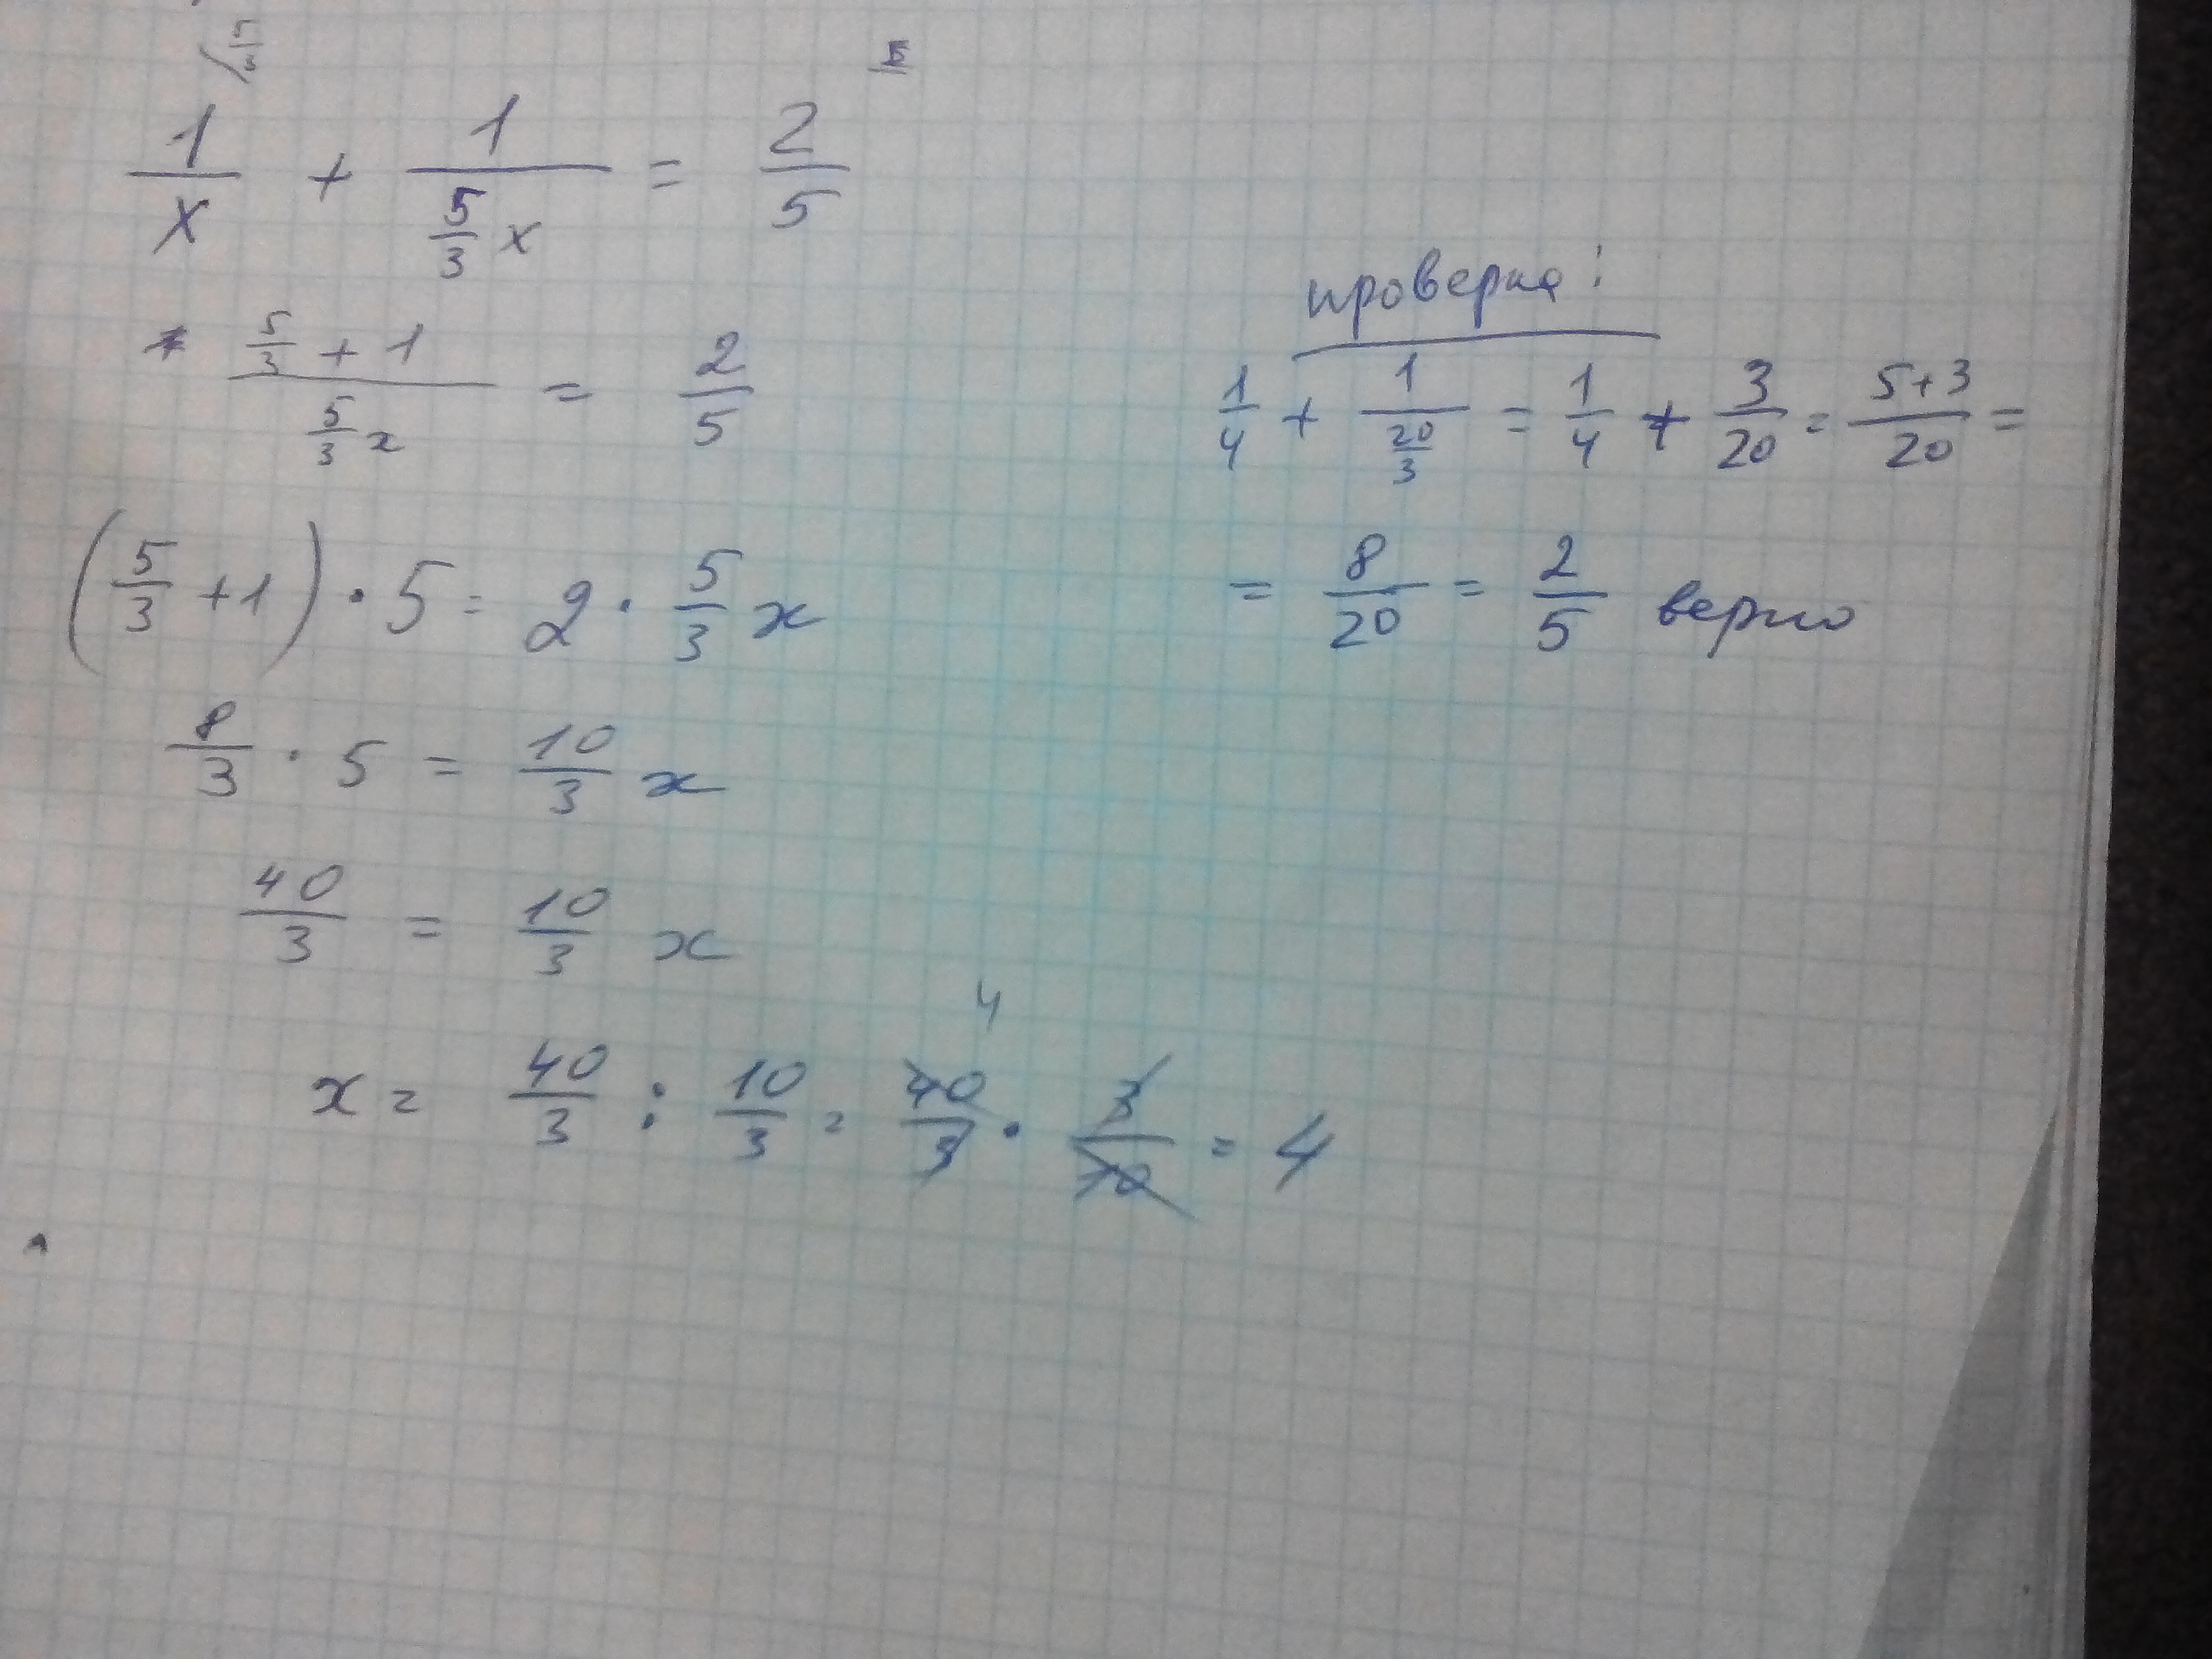 5/3
1/x + 1/(5/3 x) = 2/5
(5/3 + 1)/(5/3 x) = 2/5
(5/3 + 1) · 5 = 2 · 5/3 x
8/3 · 5 = 10/3 x
40/3 = 10/3 x
4
x = 40/3 : 10/3 = 40/3 · 3/10 = 4
проверка:
1/4 + 1/(20/3) = 1/4 + 3/20 = (5+3)/20 =
= 8/20 = 2/5 верно